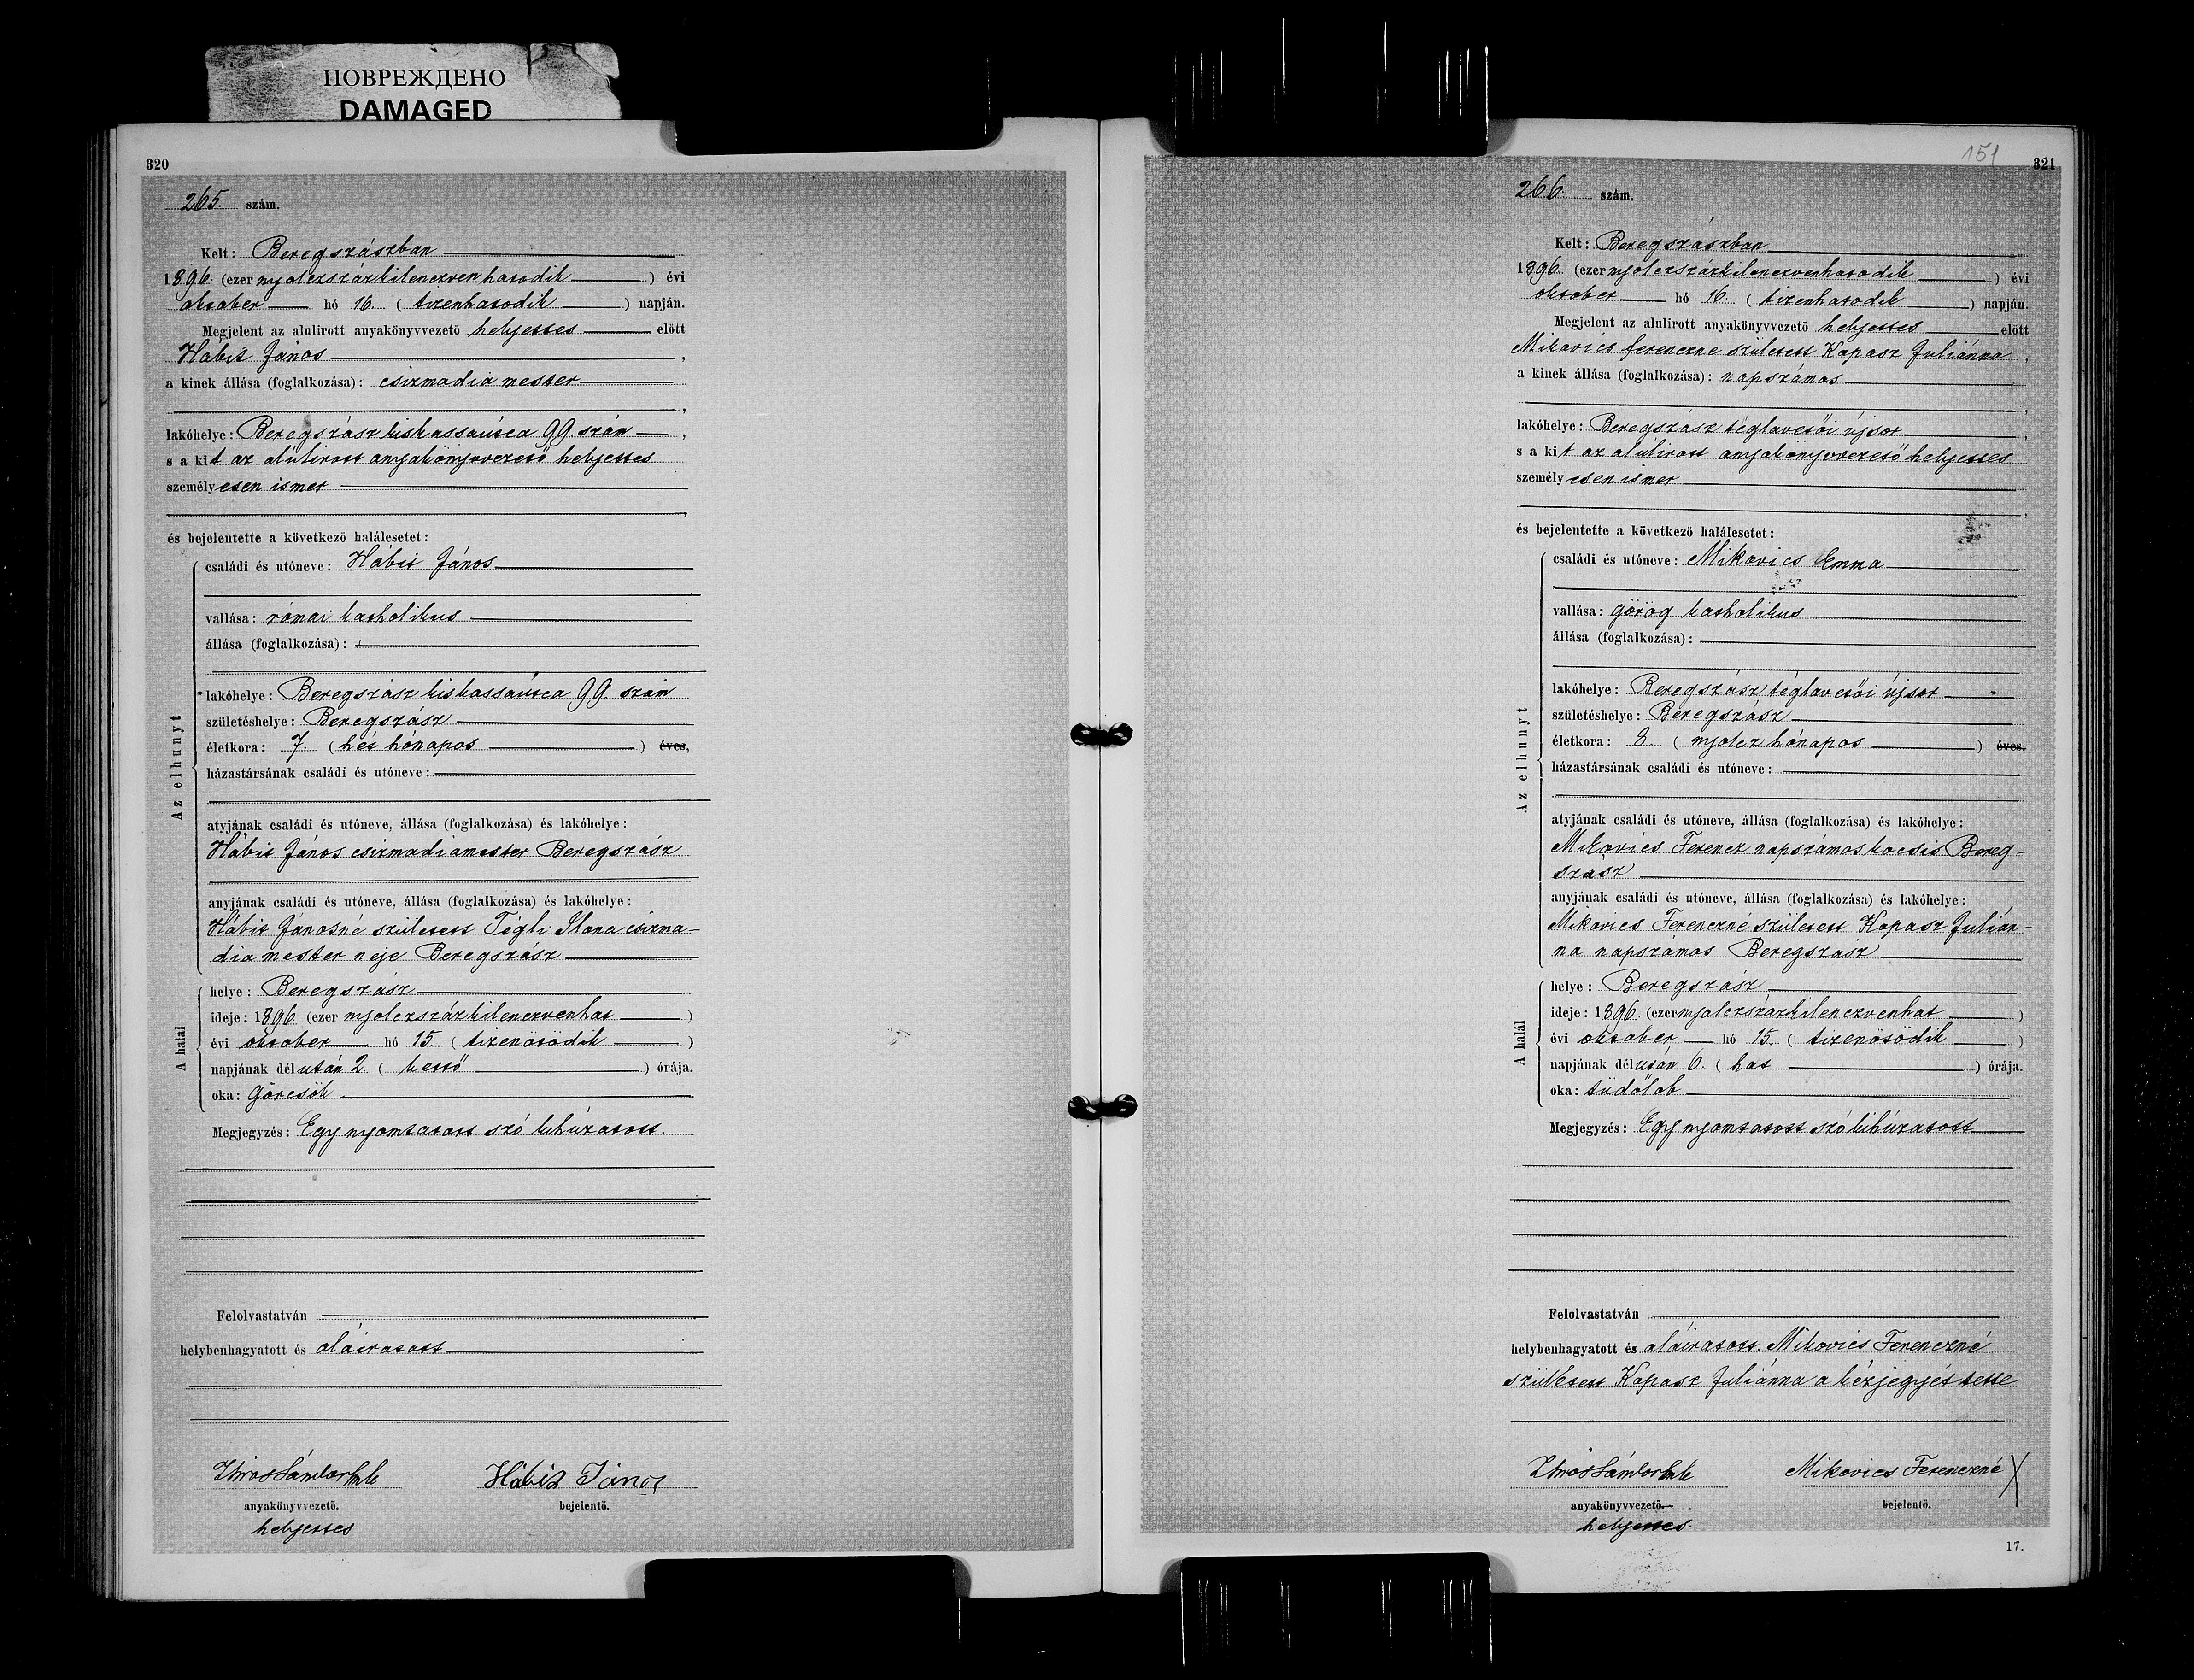 ПОВРЕЖДЕНО
DAMAGED
320
265. szám.
Kelt: Beregszászban
1896. (ezer nyolczszázkilenczvenhatodik) évi
oktober hó 16. (tizenhatodik) napján.
Megjelent az alulirott anyakönyvvezető helyettes előtt
Hábit János,
a kinek állása (foglalkozása): csizmadia mester
,
lakóhelye: Beregszász kiskassautca 99. szám,
s a kit az alulirott anyakönyvvezető helyettes
személyesen ismer
,
és bejelentette a következő halálesetet:
Az elhunyt
családi és utóneve: Hábit János
vallása: római katholikus
állása (foglalkozása):
lakóhelye: Beregszász kiskassautca 99. szám
születéshelye: Beregszász
életkora: 7. (hét hónapos) éves,
házastársának családi és utóneve:
atyjának családi és utóneve, állása (foglalkozása) és lakóhelye:
Hábit János csizmadiamester Beregszász
anyjának családi és utóneve, állása (foglalkozása) és lakóhelye:
Hábit Jánosné született Tégli Ilona csizma-
dia mester neje Beregszász
A halál
helye: Beregszász
ideje: 1896 (ezer nyolczszázkilenczvenhat)
évi oktober hó 15. (tizenötödik)
napjának délután 2. (kettő) órája.
oka: Görcsök
Megjegyzés: Egy nyomtatott szó kihúzatott.
Felolvastatván
helybenhagyatott és aláiratott
Hábit János
anyakönyvvezető.
bejelentő.
helyettes
151
321
266. szám.
Kelt: Beregszászban
1896. (ezer nyolczszázkilenczvenhatodik) évi
oktober hó 16. (tizenhatodik) napján.
Megjelent az alulirott anyakönyvvezető helyettes előtt
Mikovics ferenczne született Kapasz Juliánna,
a kinek állása (foglalkozása): napszámos
,
lakóhelye: Beregszász téglavetői újsor,
s a kit az alulirott anyakönyvvezető helyettes
személyesen ismer
,
és bejelentette a következő halálesetet:
Az elhunyt
családi és utóneve: Mikovics Emma
vallása: görög katholikus
állása (foglalkozása):
lakóhelye: Beregszász téglavetői újsor
születéshelye: Beregszász
életkora: 8. (nyolcz hónapos) éves,
házastársának családi és utóneve:
atyjának családi és utóneve, állása (foglalkozása) és lakóhelye:
Mikovics Ferencz napszámos kocsis Bereg-
szász
anyjának családi és utóneve, állása (foglalkozása) és lakóhelye:
Mikovics Ferenczné született Kopasz Julián-
na napszámos Beregszász
A halál
helye: Beregszász
ideje: 1896. (ezer nyolczszázkilenczvenhat)
évi oktober hó 15. (tizenötödik)
napjának délután 6. (hat) órája.
oka: tüdőlob
Megjegyzés: Egy nyomtatott szó kihúzatott
Felolvastatván
helybenhagyatott és aláiratott. Mikovics Ferenczné
született Kopasz Juliánna a kézjegyét tette
Mikovics Ferenczné X
anyakönyvvezető.
bejelentő.
helyettes.
17.